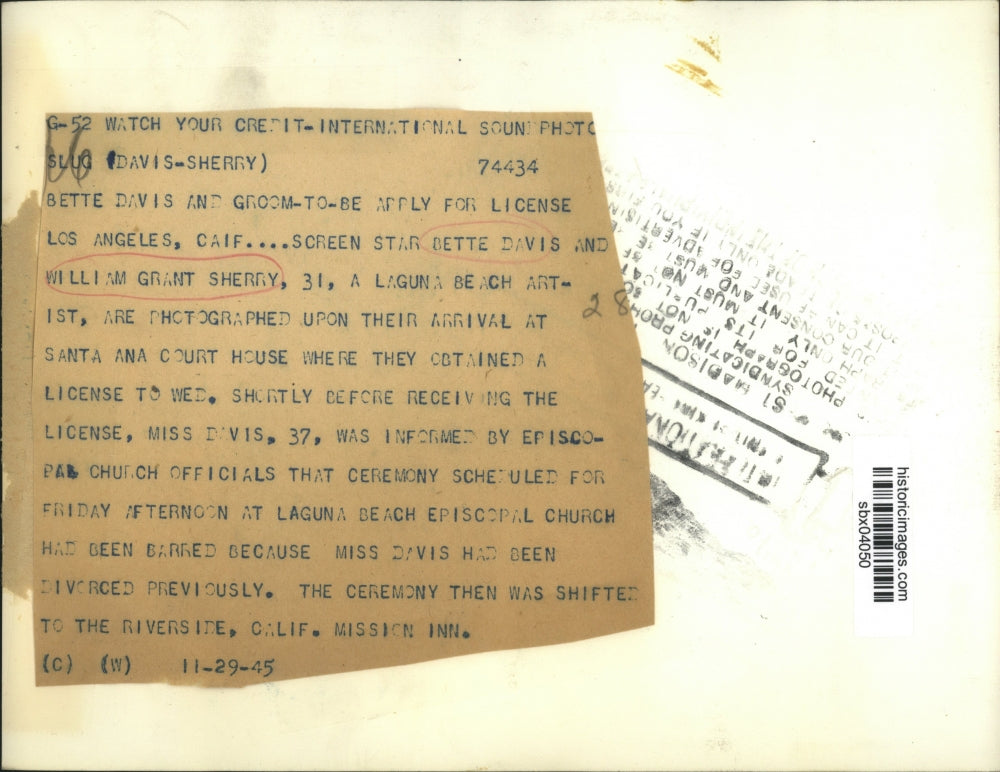 G-52 WATCH YOUR CREDIT-INTERNATIONAL SOUNDPHOTO
SLUG (DAVIS-SHERRY) 74434
BETTE DAVIS AND GROOM-TO-BE APPLY FOR LICENSE
LOS ANGELES, CAIF....SCREEN STAR BETTE DAVIS AND
WILLIAM GRANT SHERRY, 31, A LAGUNA BEACH ART-
IST, ARE PHOTOGRAPHED UPON THEIR ARRIVAL AT
SANTA ANA COURT HOUSE WHERE THEY OBTAINED A
LICENSE TO WED. SHORTLY BEFORE RECEIVING THE
LICENSE, MISS DAVIS, 37, WAS INFORMED BY EPISCO-
PAL CHURCH OFFICIALS THAT CEREMONY SCHEDULED FOR
FRIDAY AFTERNOON AT LAGUNA BEACH EPISCOPAL CHURCH
HAD BEEN BARRED BECAUSE MISS DAVIS HAD BEEN
DIVORCED PREVIOUSLY. THE CEREMONY THEN WAS SHIFTED
TO THE RIVERSIDE, CALIF. MISSION INN.
(C) (W) 11-29-45
28
PHOTOGRAPH IS
SYNDICATING
MADISON
historicimages.com
sbx04050